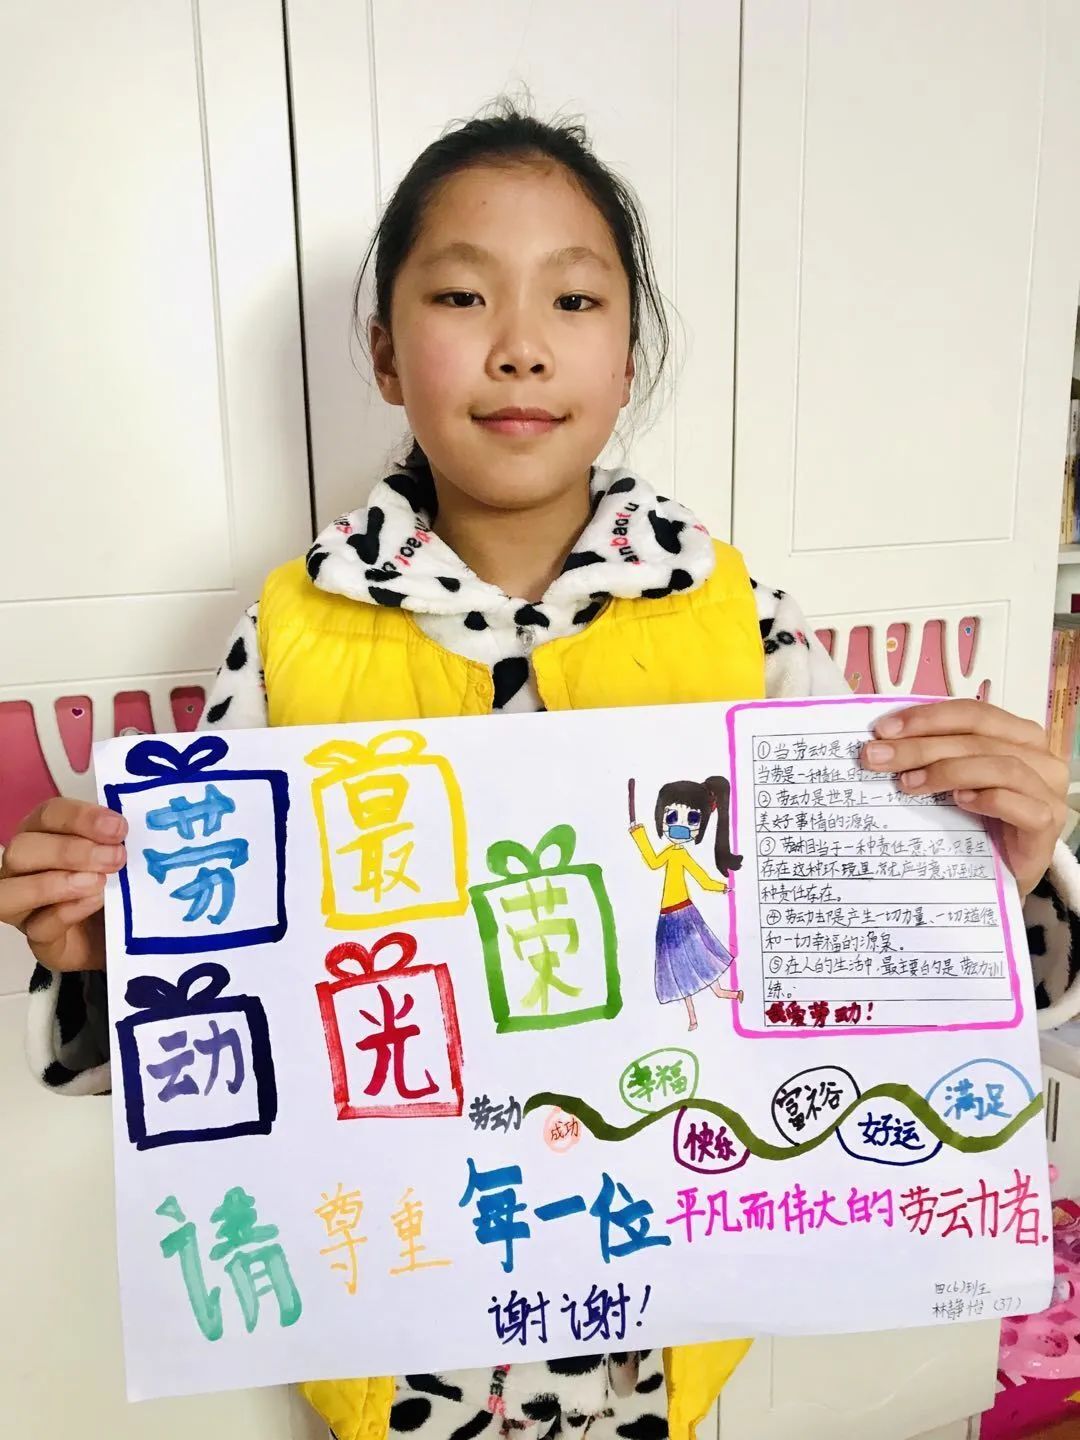 劳动
最光荣
①当劳动是种
当劳是一种责任
②劳动是世界上一切
美好事情的源泉。
识，只要生
存在这种环境里，就尤应当意识到这
种责任存在。
④劳动却是产生一切力量、一切道德
和一切幸福的源泉。
⑤在人的生活中，最主要的是劳动训
练。
我爱劳动！
劳动 成功 幸福 快乐 富裕 好运 满足
请尊重每一位平凡而伟大的劳动者.
谢谢！
四(6)班
林静怡(37)